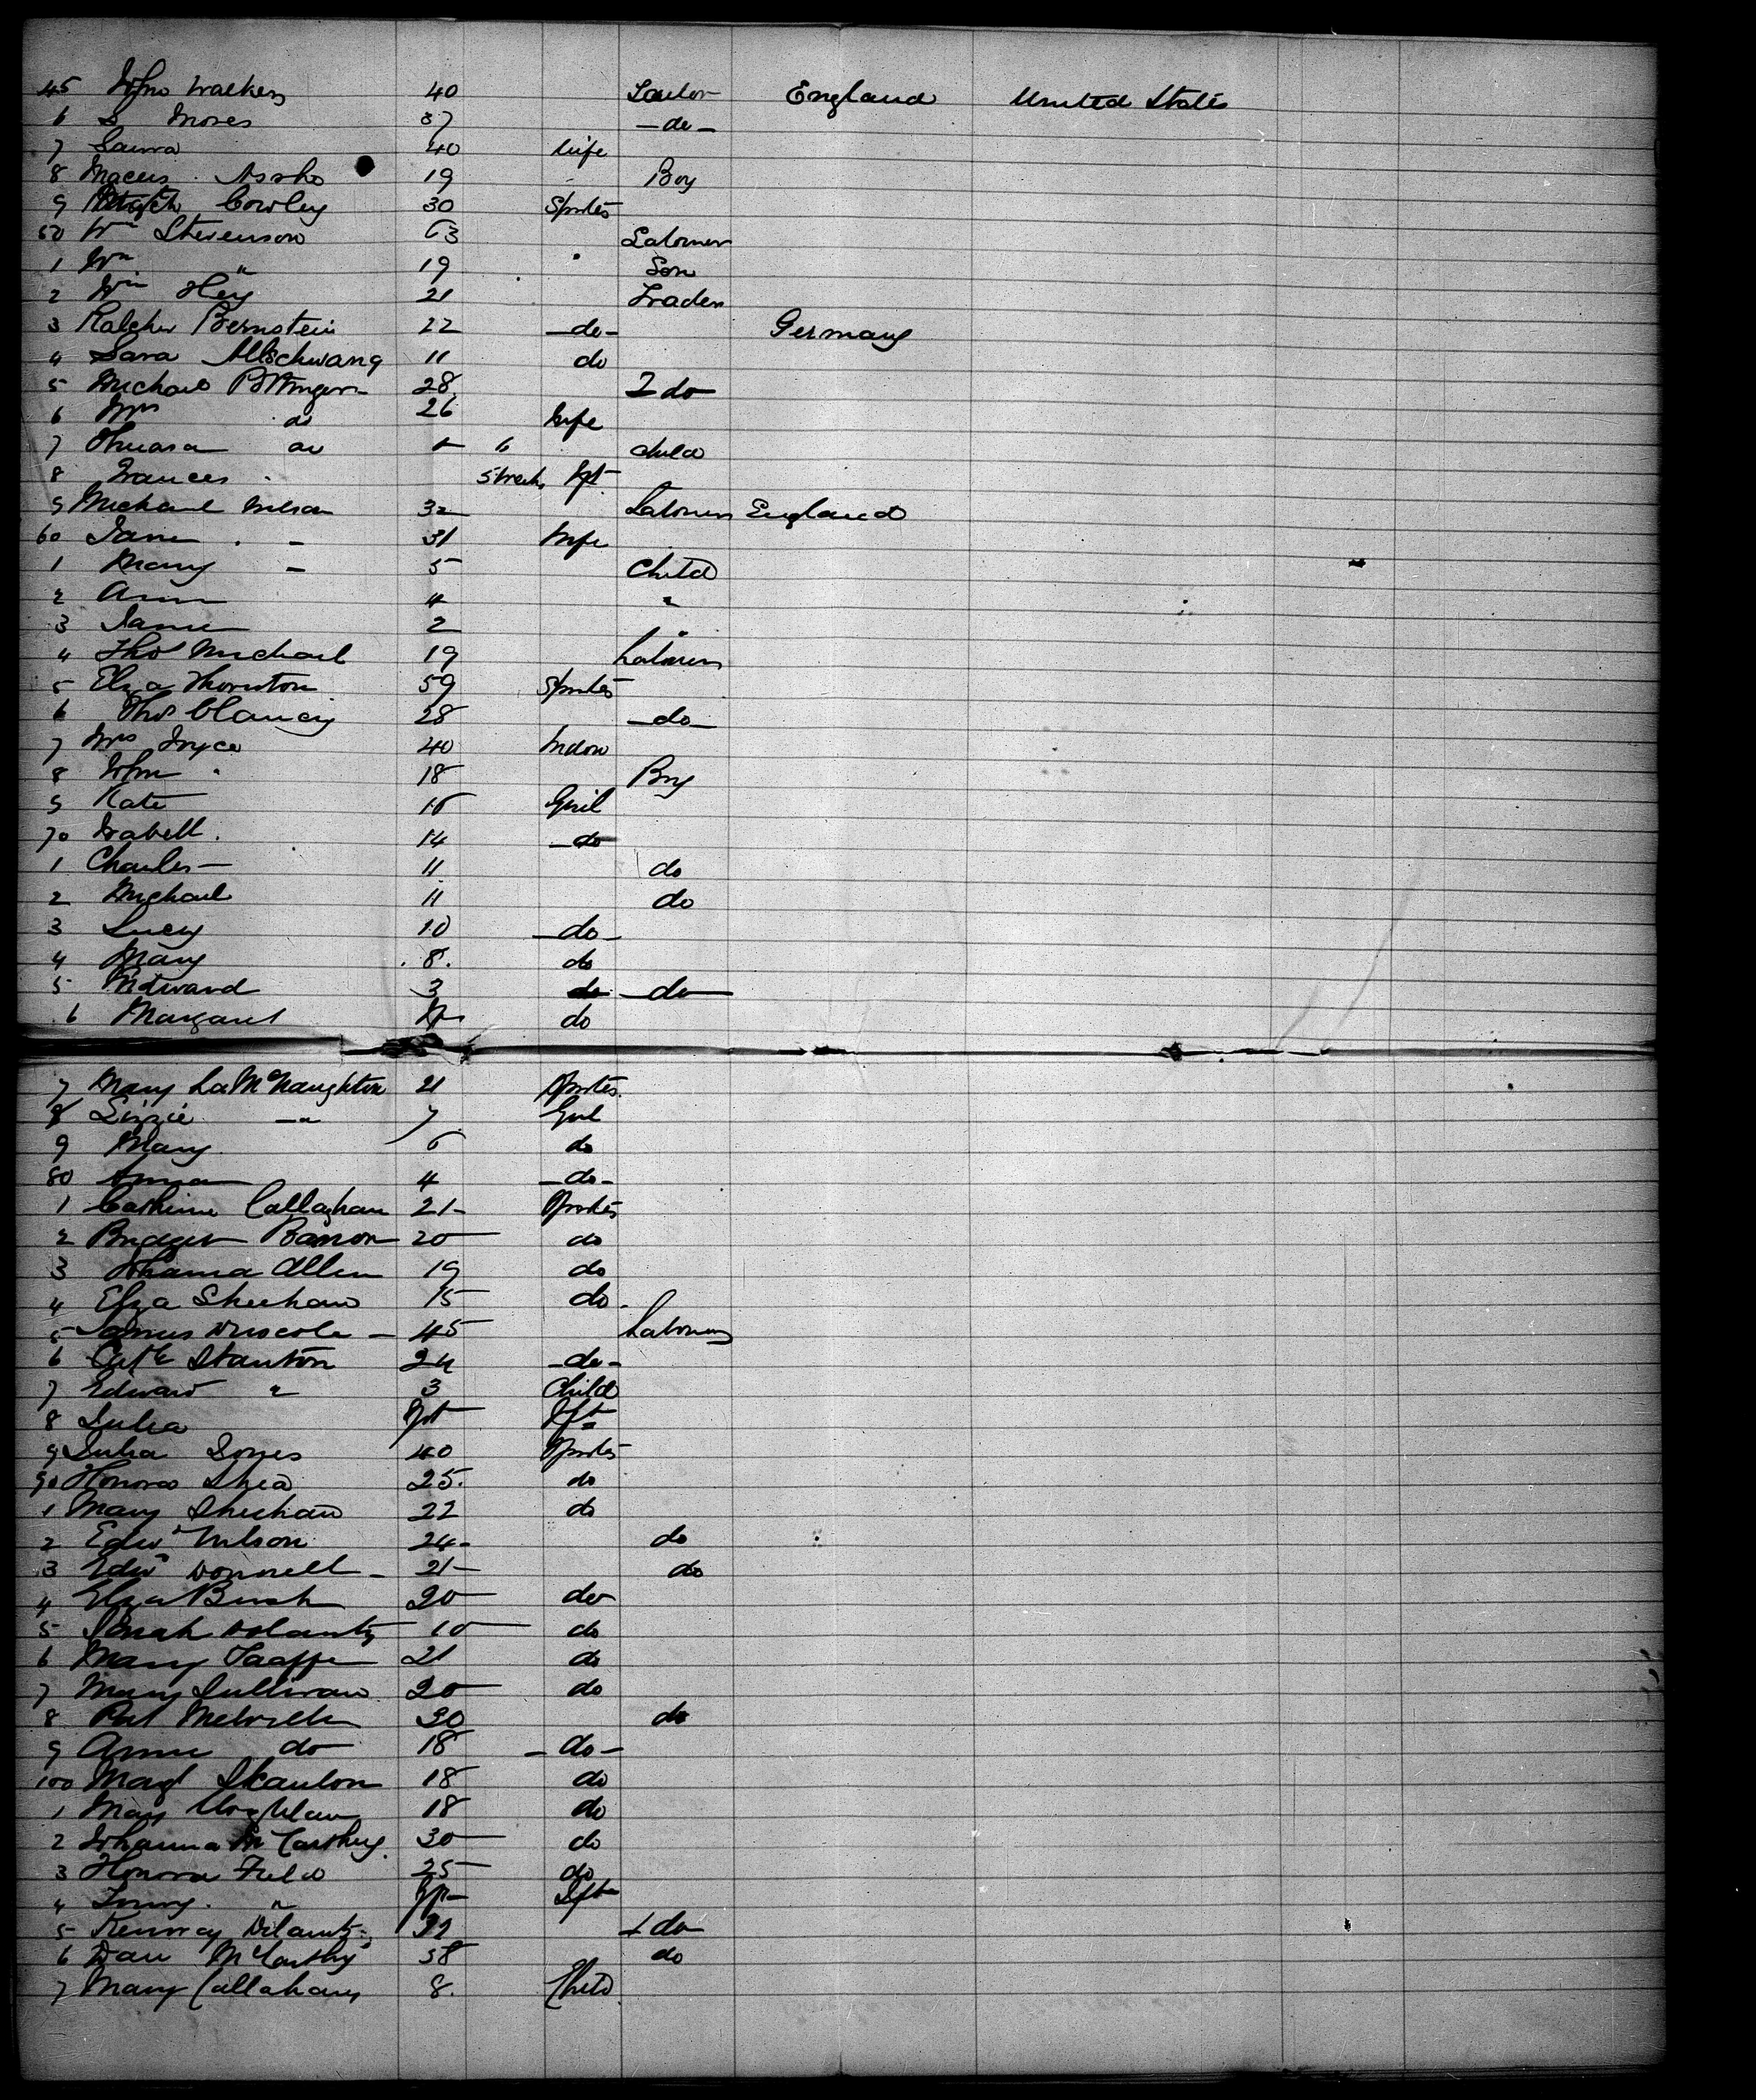 45 John Walker 40 England United States
6 S Moses 37 -do-
7 Laura 40 Wife
8 19 Boy
9 Cowley 30 Sprters
50 Wm Stevenson 63 Laborer
1 Wm " 19 Son
2 Wm Hey 21 Trader
3 Bernstein 22 -do- Germany
4 Sara Altschwang 11 do
5 Michael 28 do
6 Mrs do 26 Wife
7 do 6 child
8 Frances 5 weeks Ift
9 Michael 32 Laborer England
60 Jane - 31 Wife
1 Mary - 5 Child
2 Ann 4 "
3 Jane 2 "
4 Thos Michael 19 Laborer
5 Eliza Thornton 59 Sprters
6 Thos Clancey 28 -do-
7 Mrs Joyce 40 Widow
8 John " 18 Boy
9 Kate 16 Girl
70 Isabell 14 -do-
1 Charles 11 do
2 Michael 11 do
3 Lucy 10 -do-
4 Mary 8 do
5 Edward 3 do
6 Margaret do
7 Mary McNaughton 21 Sprters
8 Lizzie " 7 Girl
9 Mary 6 do
80 Anna 4 -do-
1 Catherine Callaghan 21 Sprters
2 Bridget Barron 20 do
3 Johanna Allen 19 do
4 Eliza Sheehan 15 do
5 James Driscole 45 Laborer
6 Cath Stanton 24 -do-
7 Edward " 3 Child
8 Julia Ift
9 Julia Jones 40 Sprters
90 Honora Shea 25 do
1 Mary Sheehan 22 do
2 Edwd 24 do
3 Edwd Donnell 21 do
4 Eliza Bush 20 do
5 10 do
6 Mary Taaffe 21 do
7 Mary Sullivan 20 do
8 Pat Melville 30 do
9 Annie do 18 -do-
100 Magt Skanlon 18 do
1 Mary 18 do
2 Johanna McCarthy 30 do
3 Honora Field 25 do
4 " Ift
5 do
6 Dan McCarthy 38 do
7 Mary Callahan 8 Child